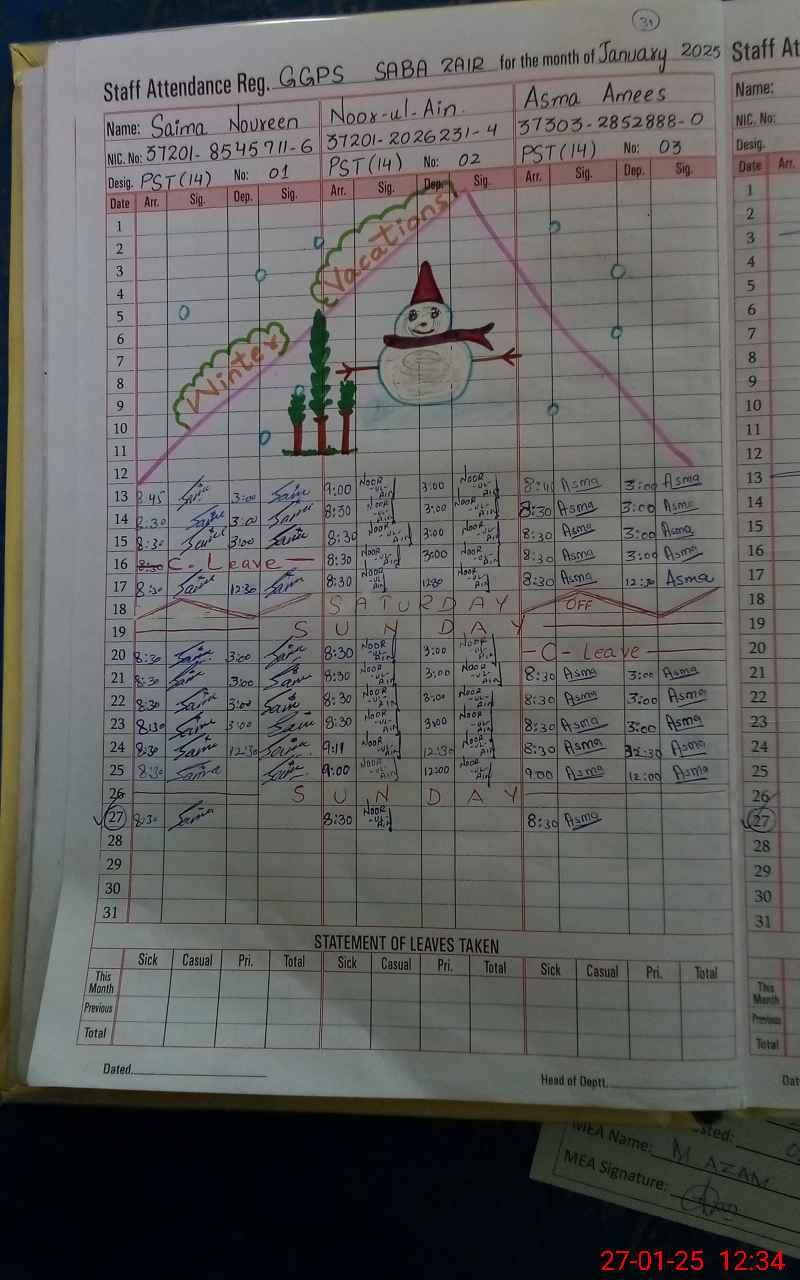 31
Staff Attendance Reg. GGPS SABA ZAIR for the month of January 2025
Name: Saima Noureen Noor-ul-Ain. Asma Amees
NIC. No: 37201-8545711-6 37201-2026231-4 37303-2852888-0
Desig. PST(14) No: 01 PST(14) No: 02 PST(14) No: 03
Date Arr. Sig. Dep. Sig. Arr. Sig. Dep. Sig. Arr. Sig. Dep. Sig.
Winter Vacations
1
2
3
4
5
6
7
8
9
10
11
12
13 8:45 3:00 9:00 NOOR-UL-Ain 3:00 NOOR-UL-Ain Asma 3:00 Asma
14 8:30 3:00 8:30 NOOR-UL-Ain 3:00 NOOR-UL-Ain 8:30 Asma 3:00 Asma
15 8:30 3:00 8:30 NOOR-UL-Ain 3:00 NOOR-UL-Ain 8:30 Asma 3:00 Asma
16 8:30 C-Leave 8:30 NOOR-UL-Ain 3:00 NOOR-UL-Ain 8:30 Asma 3:00 Asma
17 8:30 12:30 8:30 NOOR-UL-Ain NOOR-UL-Ain 8:30 Asma 12:30 Asma
18 SATURDAY OFF
19 SUNDAY
20 8:30 3:00 8:30 NOOR-UL-Ain 3:00 NOOR-UL-Ain -C-Leave
21 8:30 3:00 8:30 NOOR-UL-Ain 3:00 NOOR-UL-Ain 8:30 Asma 3:00 Asma
22 8:30 3:00 8:30 NOOR-UL-Ain 3:00 NOOR-UL-Ain 8:30 Asma 3:00 Asma
23 8:30 3:00 8:30 NOOR-UL-Ain 3:00 NOOR-UL-Ain 8:30 Asma 3:00 Asma
24 8:30 12:30 9:19 NOOR-UL-Ain 12:30 NOOR-UL-Ain 8:30 Asma 12:30 Asma
25 8:30 9:00 NOOR-UL-Ain 12:00 NOOR-UL-Ain 9:00 Asma 12:00 Asma
26 SUNDAY
27 8:30 8:30 NOOR-UL-Ain 8:30 Asma
28
29
30
31
STATEMENT OF LEAVES TAKEN
Sick Casual Pri. Total Sick Casual Pri. Total Sick Casual Pri. Total
This Month
Previous
Total
Dated. Head of Deptt.
Staff At
Name:
NIC. No:
Desig.
Date Arr.
1
2
3
4
5
6
7
8
9
10
11
12
13
14
15
16
17
18
19
20
21
22
23
24
25
26
27
28
29
30
31
This Month
Previous
Total
Dat
sted:
MEA Name: M AZAM
MEA Signature:
27-01-25 12:34